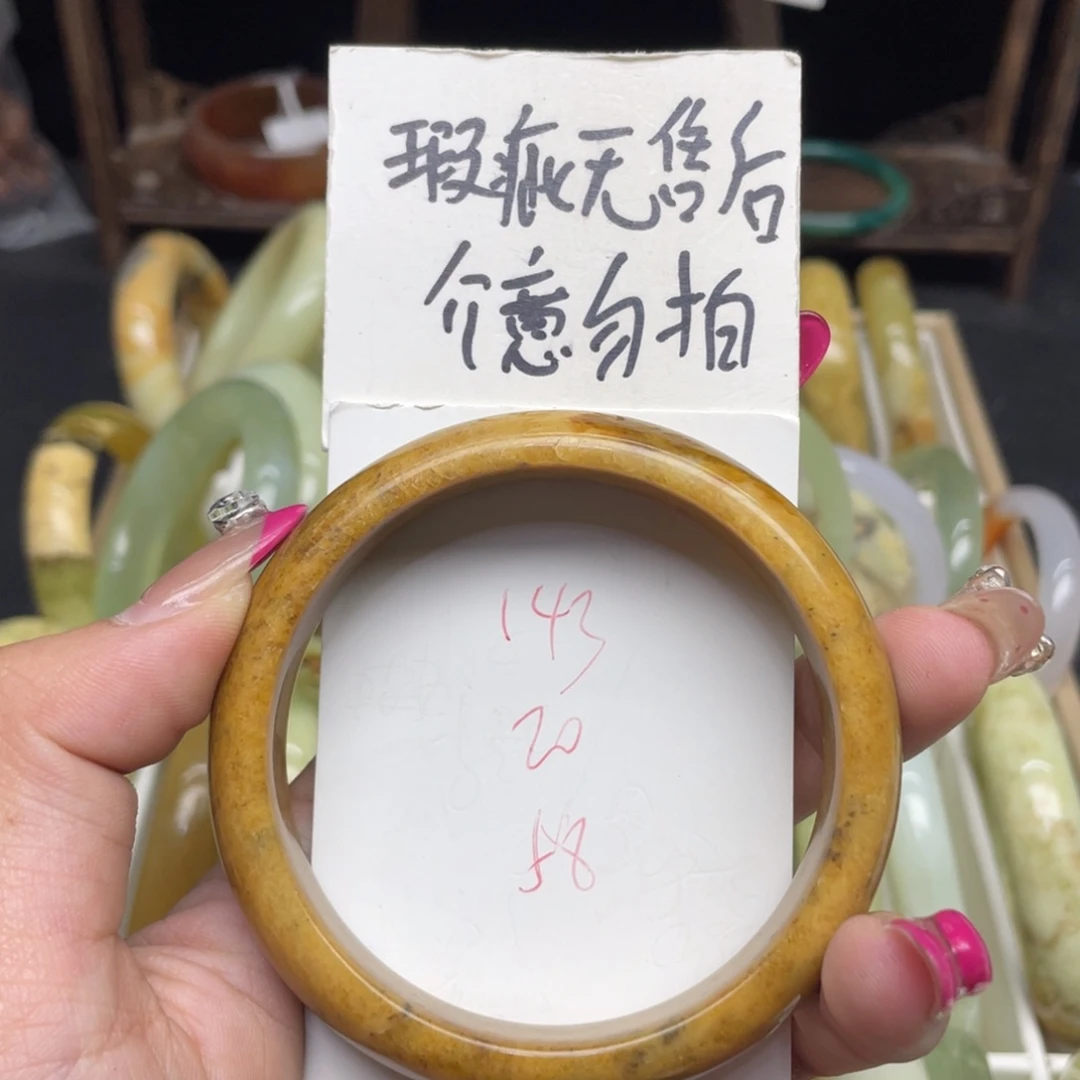 瑕疵无售后
介意勿拍
143
20
58